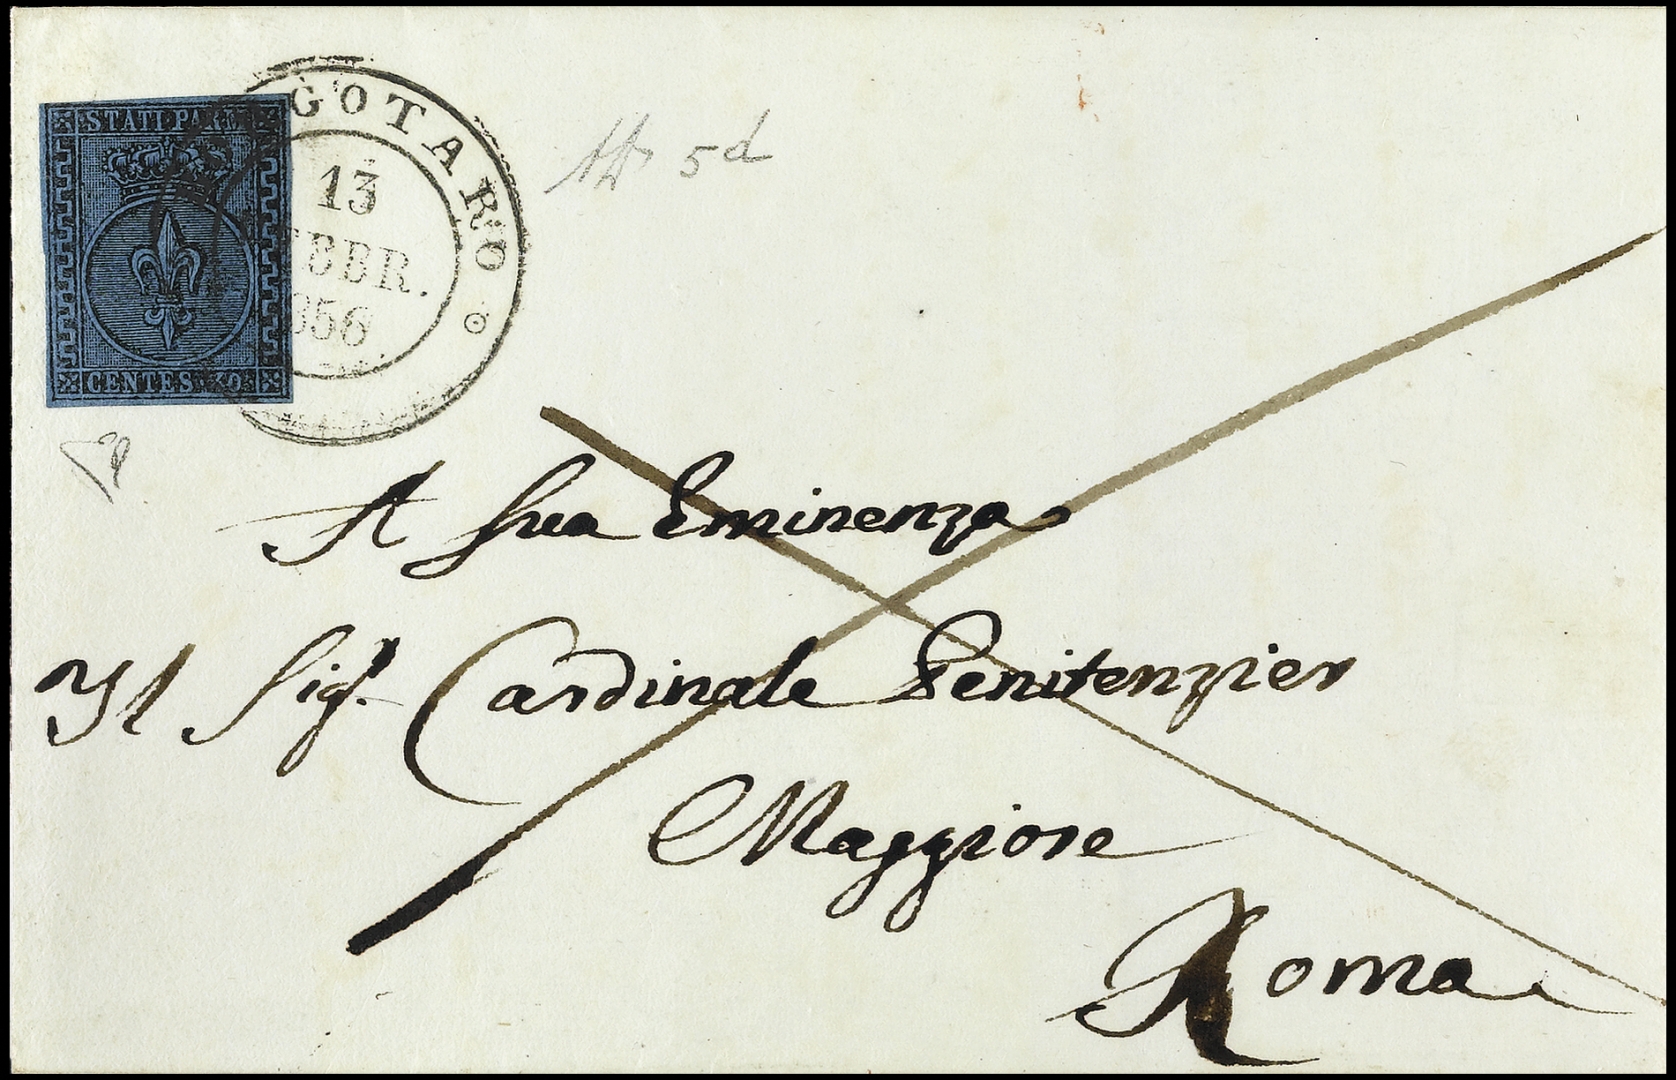 STATI PARM
GOTARO
13
EBBR.
856
CENTES. 40
5d
A Sua Eminenza
Il Sigr. Cardinale Penitenzier
Maggiore
Roma